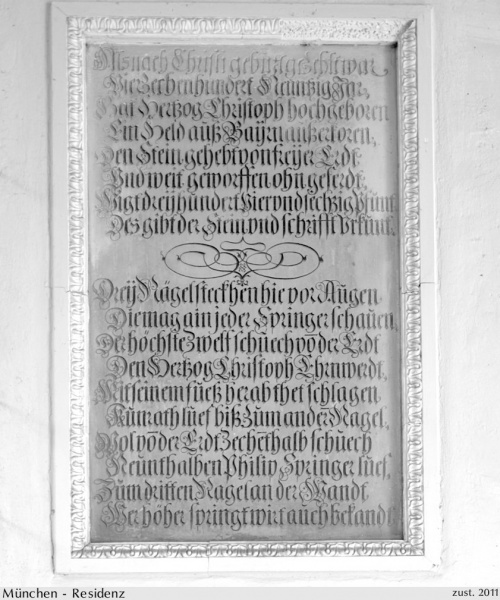 Als nach Christi geburt gezehlt war
Vierzechenhundert Neuntzig Jar,
Hat Hertzog Christoph hochgeboren
Ein Held auß Bayrn außerkoren,
Den Stein gehebt von freyer Erdt
Und weit geworffen ohn geferdt,
Wigt dreyhundert Vier und sechzig Pfunt,
Des gibt der Stein und schrifft Urkunt.
Dreÿ Nägel steckhen hie vor Augen
Die mag ain jeder Springer schauen,
Der höchste Zwelf schuech vō der Erdt
Den Hertzog Christoph Ehrnwerdt,
Mit seinem fueß herab thet schlagen.
Kunrath luef biß Zum ander Nagel,
Wol vō der Erdt Zechethalb schuech
Neunthalben Philip Springer luef,
Zum dritten Nagel an der Wandt
Wer höher springt wirt auch bekandt
München - Residenz
zust. 2011